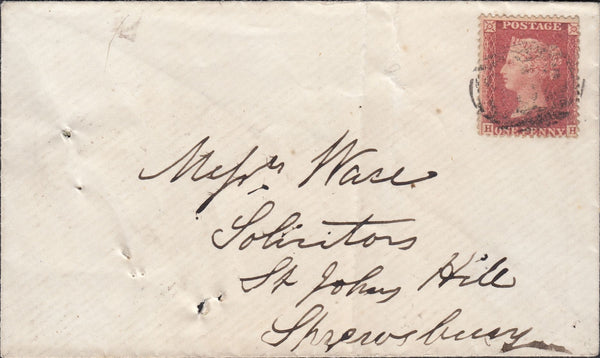 POSTAGE
H ONE PENNY H
Messrs Wace
Solicitors
St Johns Hill
Shrewsbury